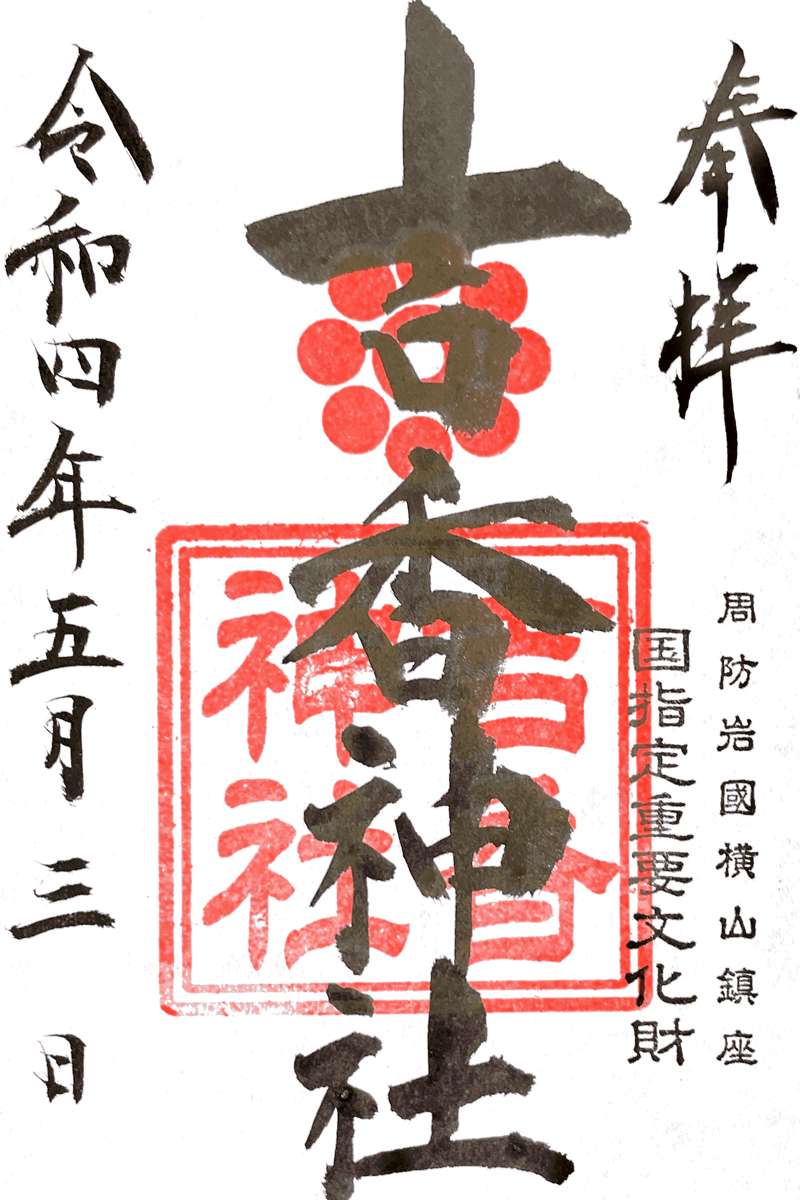 奉拝
周防岩國横山鎮座
国指定重要文化財
吉香神社
吉香神社
令和四年五月三日